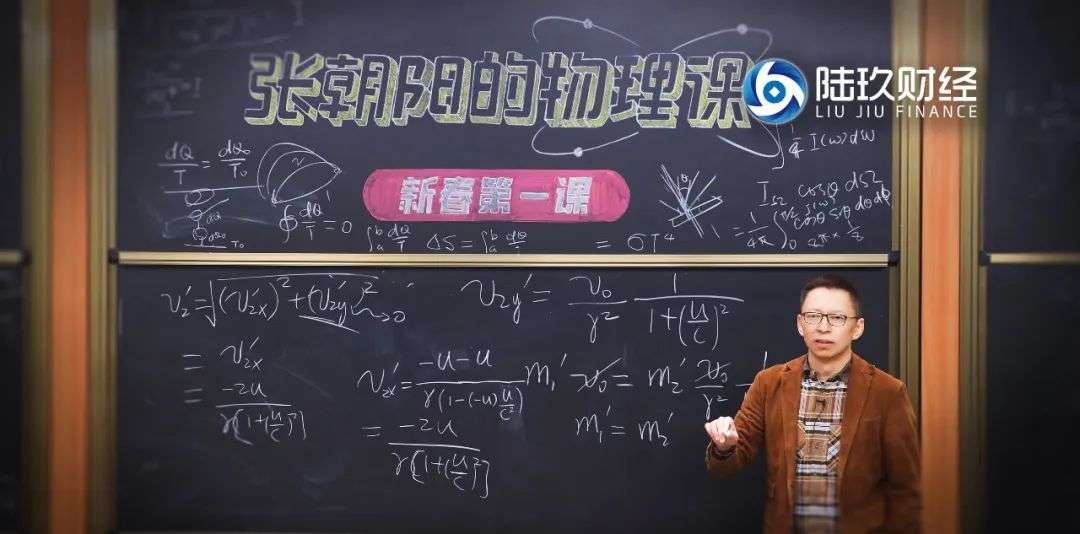 张朝阳的物理课
陆玖财经
LIU JIU FINANCE
新春第一课
dQ/T = dQ₀/T₀
∮ dQ/T = 0
∫ₐᵇ dQ/T
ΔS = ∫ₐᵇ dQ/T
= σT⁴
I(ω)dω
T₀
v₂' = √((v₂ₓ')² + (v₂y')²) → 0
v₂y' = v₀/γ² 1/(1+(u/c)²)
= v₂ₓ'
= -2u/(γ[1+(u/c)²])
v₂ₓ' = (-u-u)/(γ(1-(-u)u/c²))
= -2u/(γ[1+(u/c)²])
m₁' v₀ = m₂' v₀/γ²
m₁' = m₂'